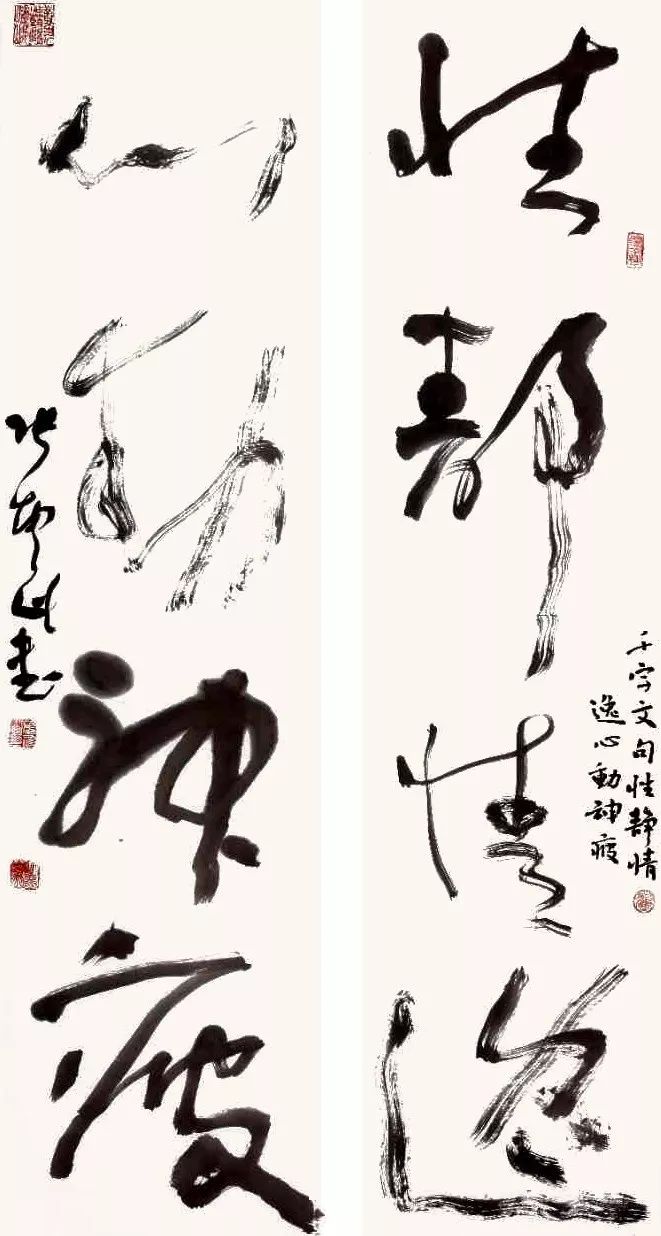 性靜情逸
千字文句性靜情
逸心動神疲
心動神疲
書